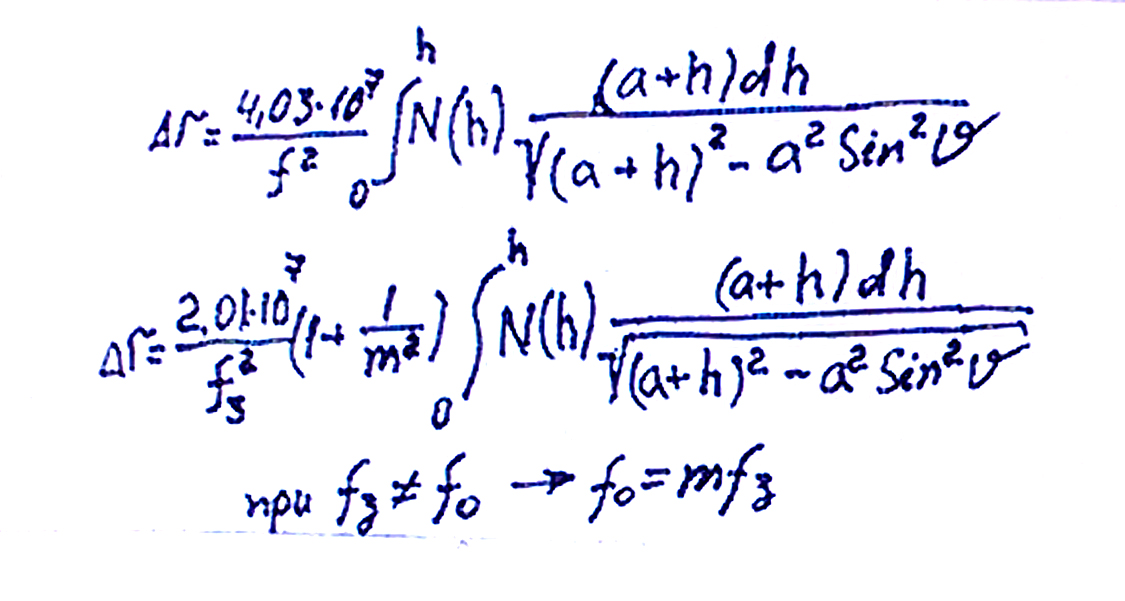 Δr = \frac{4,03·10^7}{f^2} \int_0^h N(h) \frac{(a+h)dh}{\sqrt{(a+h)^2 - a^2 Sin^2 υ}}
Δr = \frac{2,01·10^7}{f_з^2} (1 + \frac{1}{m^2}) \int_0^h N(h) \frac{(a+h)dh}{\sqrt{(a+h)^2 - a^2 Sin^2 υ}}
при f_з ≠ f_0 → f_0 = mf_з